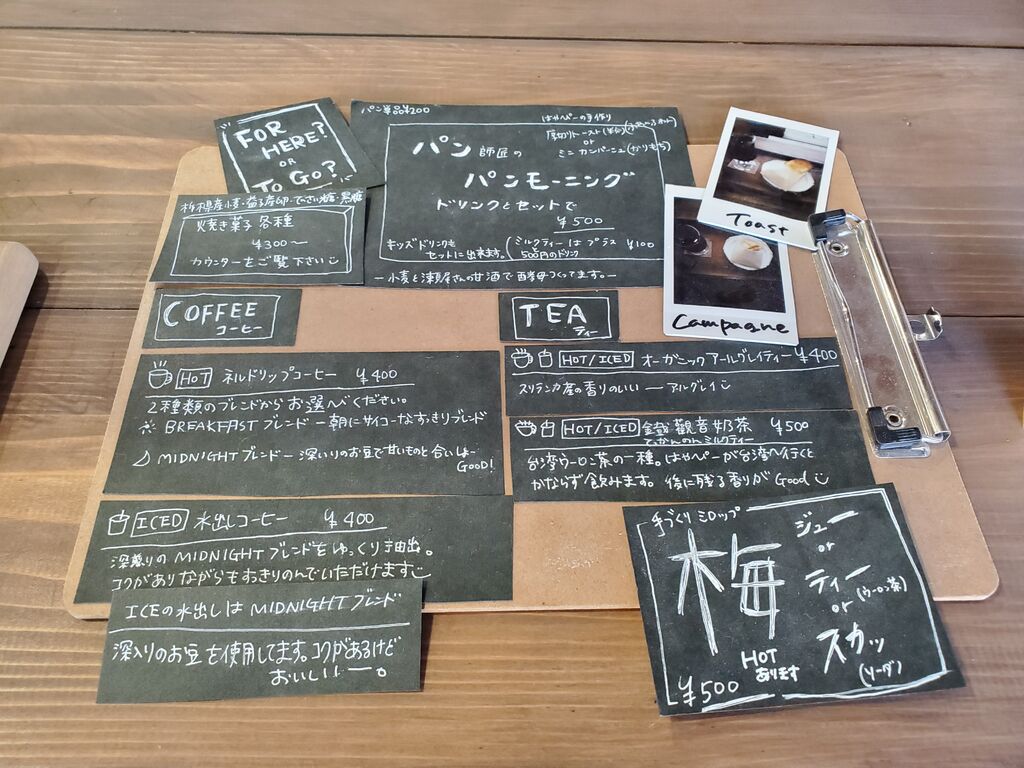 FOR
HERE?
OR
TO GO?
パン単品¥200
はやぺーの手作り
厚切りトースト
or
ミニ カンパーニュ
パン師匠の
パンモーニング
ドリンクとセットで
¥500
キッズドリンクも
セットに出来ます。
ミルクティーは プラス ¥100
500円のドリンク
焼き菓子 各種
¥300〜
カウンターをご覧下さい
Toast
Campagne
COFFEE
コーヒー
HOT ネルドリップコーヒー ¥400
2種類のブレンドからお選べください。
BREAKFAST ブレンド ー 朝にサイコーなすっきりブレンド
MIDNIGHT ブレンドー 深いりのお豆で甘いものと合いよー
GOOD!
ICED 水出しコーヒー ¥400
深煎りの MIDNIGHT ブレンドをゆっくり抽出。
コクがありながらもすっきりのんでいただけます
ICEの水出しは MIDNIGHT ブレンド
深入りのお豆を使用してます。コクがあるけど
おいしいーー。
TEA
ティー
HOT/ICED オーガニックアールグレイティー ¥400
スリランカ産の香りのいい ー アールグレイ
HOT/ICED 鉄観音奶茶 ¥500
てっかんのんミルクティー
台湾ウーロン茶の一種。はやぺーが台湾へ行くと
かならず飲みます。後に残る香りが Good
手づくりシロップ
梅
ジュー
or
ティー
(ウーロン茶)
or
スカッ
(ソーダ)
HOT
あります
¥500